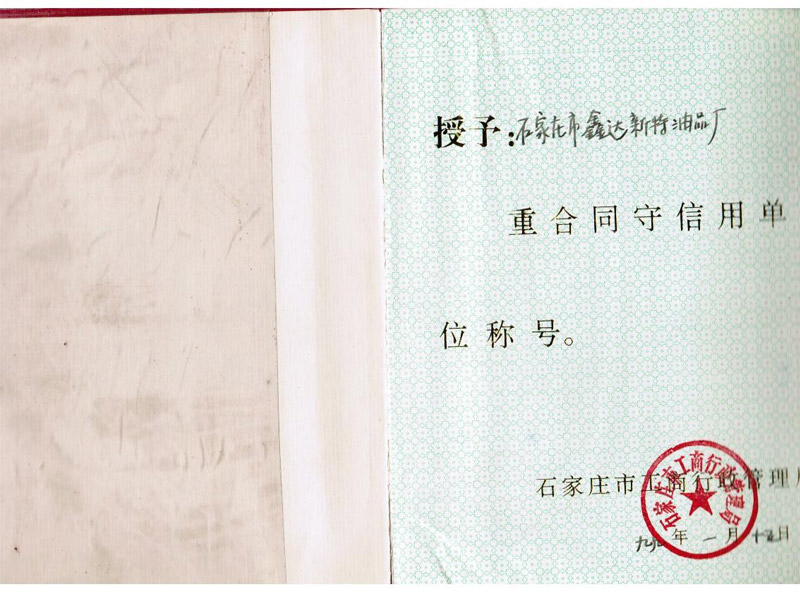 授予：石家庄市鑫达新特油品厂
重合同守信用单
位称号。
石家庄市工商行政管理局
石家庄市工商行政管理局
年一月十五日